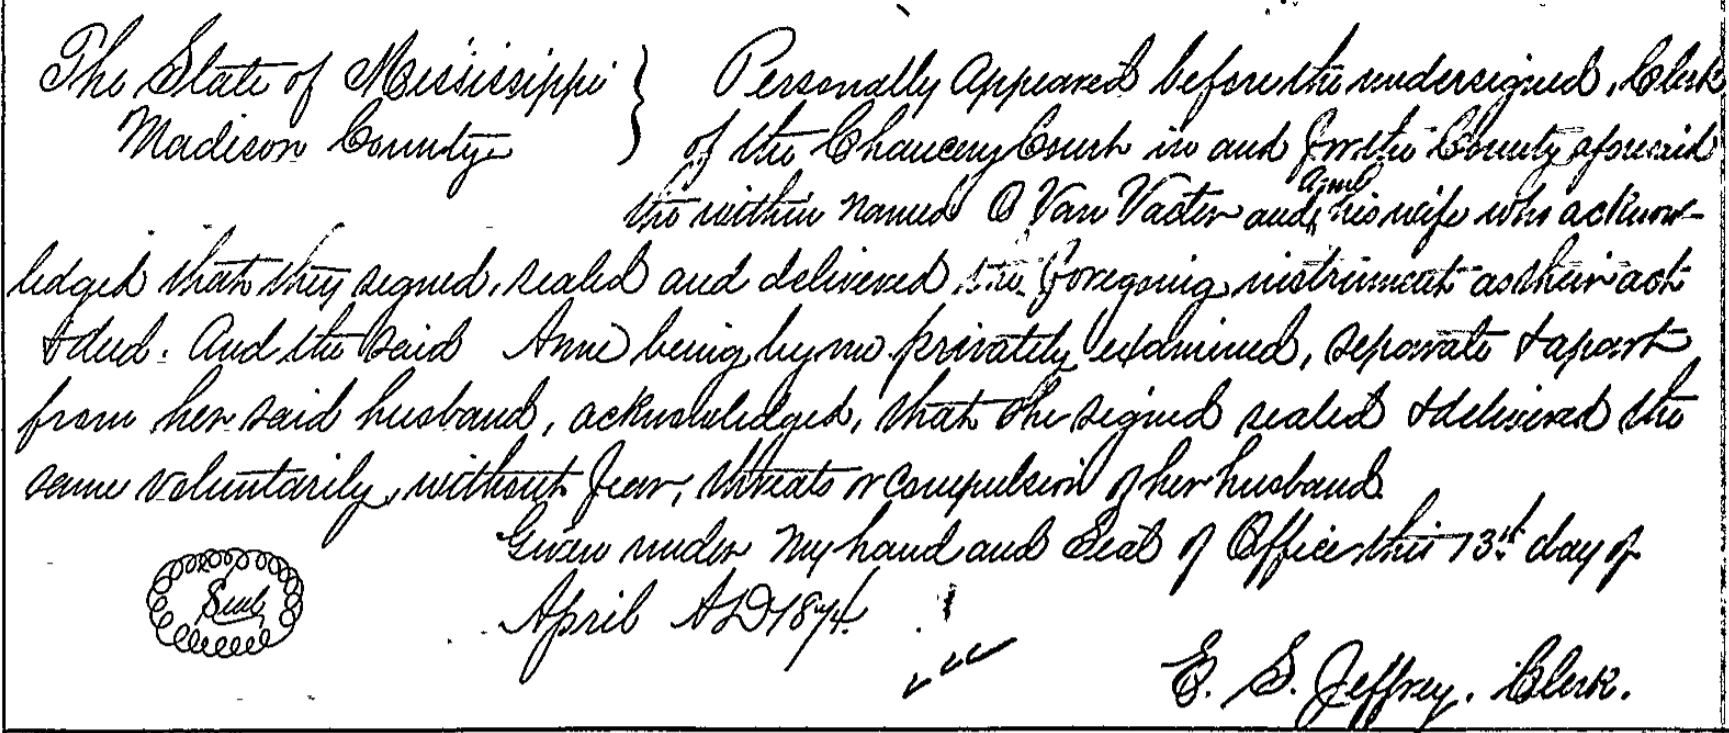 The State of Mississippi } Personally Appeared before the undersigned, Clerk
Madison County } of the Chancery Court in and for the County aforesaid
the within named C Van Vacter and Anne his wife who acknow-
ledged that they signed, sealed and delivered the foregoing instrument as their act
& deed. And the said Anne being by me privately examined, separate & apart
from her said husband, acknowledged, that she signed sealed & delivered the
same voluntarily, without fear, threats or compulsion of her husband.
Given under my hand and Seal of Office this 13th day of
Seal
April AD 1874.
E. S. Jeffrey. Clerk.